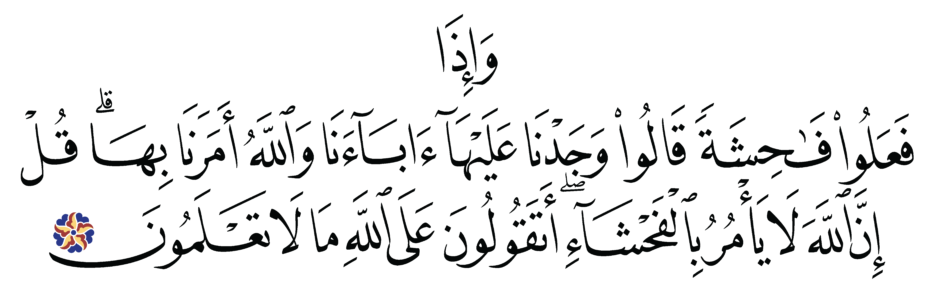 وَإِذَا
فَعَلُوا۟ فَـٰحِشَةً قَالُوا۟ وَجَدْنَا عَلَيْهَآ ءَابَآءَنَا وَٱللَّهُ أَمَرَنَا بِهَا ۗ قُلْ
إِنَّ ٱللَّهَ لَا يَأْمُرُ بِٱلْفَحْشَآءِ ۖ أَتَقُولُونَ عَلَى ٱللَّهِ مَا لَا تَعْلَمُونَ